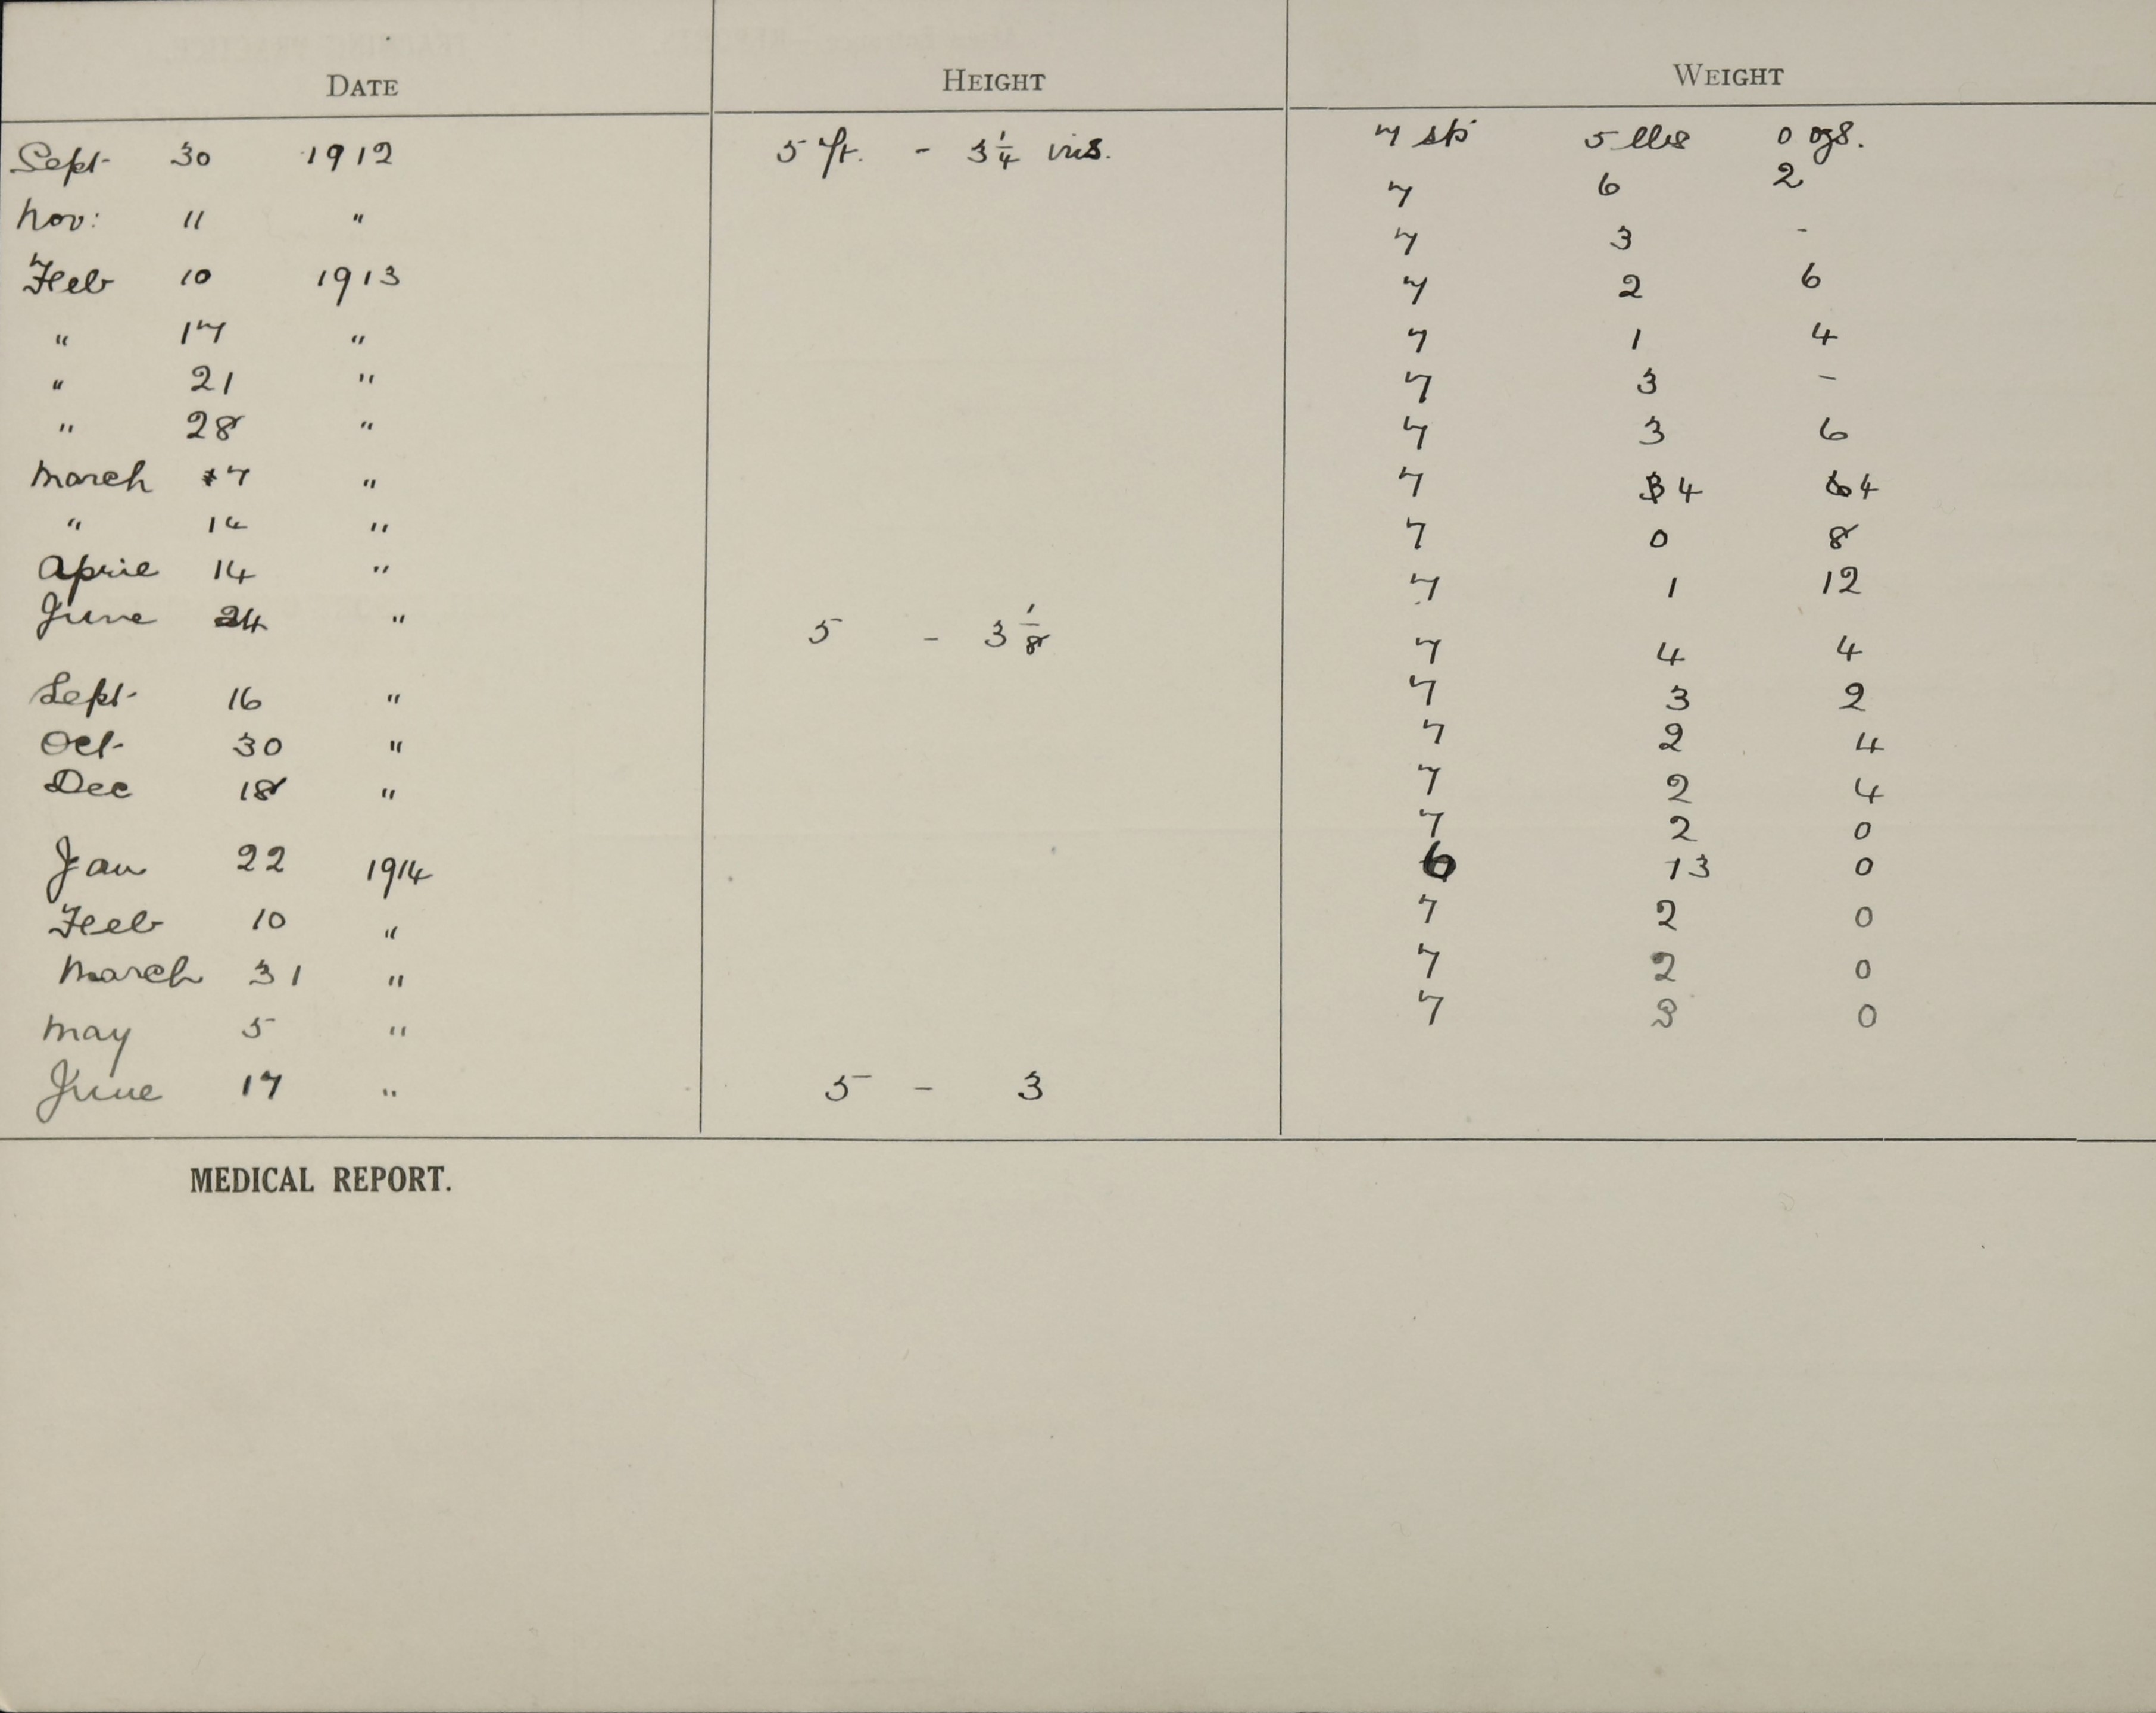 DATE HEIGHT WEIGHT
Sept 30 1912 5 ft. - 3 1/4 ins. 7 sts 5 lbs 0 ozs.
7 6 2
Nov: 11 " 7 3 -
Feb 10 1913 7 2 6
" 17 " 7 1 4
" 21 " 7 3 -
" 28 " 7 3 6
March 7 " 7 4 4
" 14 " 7 0 8
April 14 " 7 1 12
June 24 " 5 - 3 1/8 7 4 4
Sept 16 " 7 3 2
Oct 30 " 7 2 4
Dec 18 " 7 2 4
7 2 0
Jan 22 1914 6 13 0
Feb 10 " 7 2 0
March 31 " 7 2 0
May 5 " 7 3 0
June 17 " 5 - 3
MEDICAL REPORT.